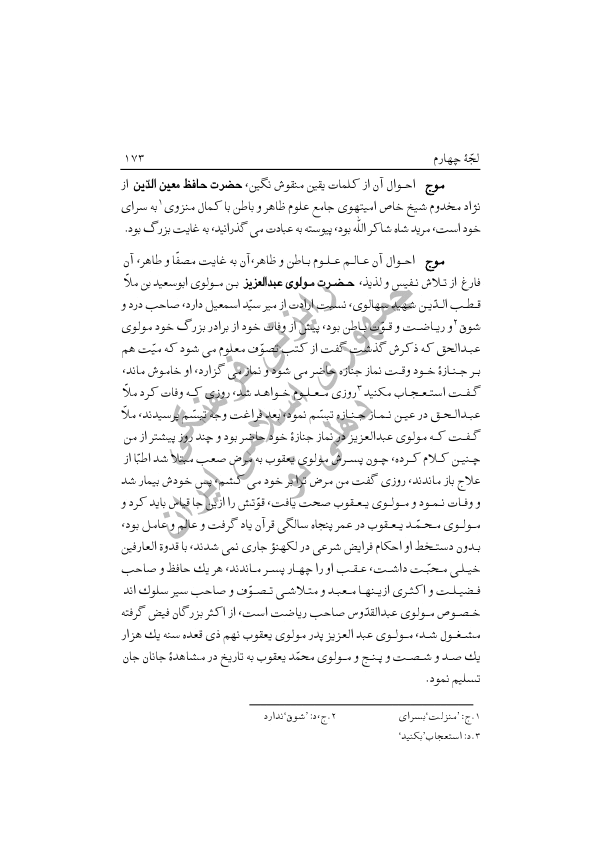 لجّهٔ چهارم ۱۷۳
موج احـوال آن از کـلمات یقین منقوش نگین، حضرت حافظ معین الدّین از
نژاد مخدوم شیخ خاص امیتهوی جامع علوم ظاهر و باطن با کمال منزوی۱ به سرای
خود است، مرید شاه شاکر الله بود، پیوسته به عبادت می گذرانید، به غایت بزرگ بود.
موج احـوال آن عـالـم عـلـوم بـاطن و ظاهر، آن به غایت مصفّا و طاهر، آن
فارغ از تـلاش نـفیس و لذیذ، حـضـرت مـولوی عبدالعزیز بـن مـولوی ابوسعید بن ملّا
قـطـب الدّیـن شهید سهالوی، نسبت ارادت از میر سیّد اسمعیل دارد، صاحب درد و
شوق۲ و ریـاضـت و قـوّت بـاطن بود، پیش از وفات خود از برادر بزرگ خود مولوی
عبـدالحق که ذکرش گذشت گفت از کتب تصوّف معلوم می شود که میّت هم
بـر جـنـازهٔ خـود وقـت نماز جنازه حاضر می شود و نماز می گزارد، او خاموش ماند،
گـفـت استـعـجاب مکنید۳ روزی مـعـلـوم خـواهـد شد، روزی کـه وفات کرد ملّا
عبـدالـحـق در عیـن نـمـاز جـنـازه تبسّم نمود، بعد فراغت وجه تبسّم پرسیدند، ملّا
گـفـت کـه مولوی عبدالعزیز در نماز جنازهٔ خود حاضر بود و چند روز پیشتر از من
چنیـن کـلام کـرده، چـون پسـرش مولوی یعقوب به مرض صعب مبتلا شد اطبّا از
علاج باز ماندند، روزی گفت من مرض ترا بر خود می کشم، پس خودش بیمار شد
و وفـات نـمـود و مـولـوی یـعـقوب صحت یافت، قوّتش را ازین جا قیاس باید کرد و
مـولـوی محـمّـد یـعـقوب در عمر پنجاه سالگی قرآن یاد گرفت و عالم و عامل بود،
بـدون دستـخط او احکام فرایض شرعی در لکهنؤ جاری نمی شدند، با قدوة العارفین
خیـلـی محبّت داشـت، عـقـب او را چـهـار پسـر مـاندند، هر یك حافظ و صاحب
فـضـیلـت و اکثـری ازیـنهـا مـعبـد و متـلاشـی تـصـوّف و صاحب سیر سلوك اند
خـصـوص مـولوی عبدالقدّوس صاحب ریاضت است، از اکثر بزرگان فیض گرفته
مشـغـول شـد، مـولـوی عبد العزیز پدر مولوی یعقوب نهم ذی قعده سنه یك هزار
یك صـد و شـصـت و پنـج و مـولـوی محمّد یعقوب به تاریخ در مشاهدهٔ جانان جان
تسلیم نمود.
۱. ج: ’منزلت‘ بسرای ۲. ج، د: ’شوق‘ ندارد
۳. د: استعجاب ’بکنید‘
رایزنی فرهنگی
جمهوری اسلامی ایران
دهلی نو